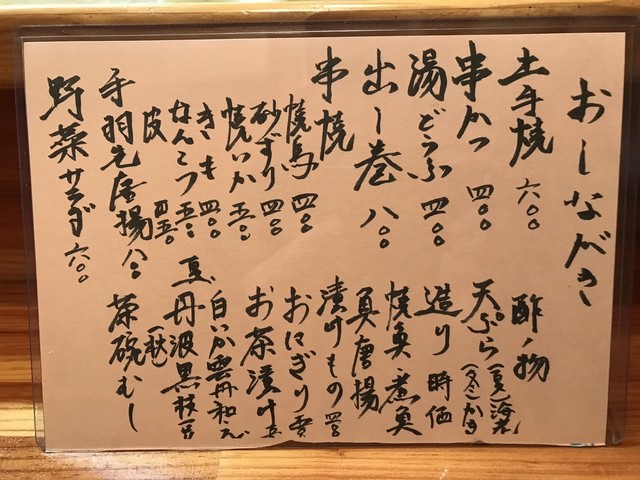 おしながき
土手焼 六〇〇
串かつ 四〇〇
湯どうふ 四〇〇
出し巻 八〇〇
串焼
焼鳥 四〇〇
砂ずり 四〇〇
焼いか 五〇〇
きも 四〇〇
なんこつ 五〇〇
皮 四五〇
手羽先唐揚 八〇〇
野菜サラダ 六〇〇
酢ノ物
天ぷら
造り 時価
焼魚・煮魚
具唐揚
漬けもの 四〇〇
おにぎり
お茶漬け
白いか雲丹和え
夏、丹波黒枝豆
(秋)
茶碗むし